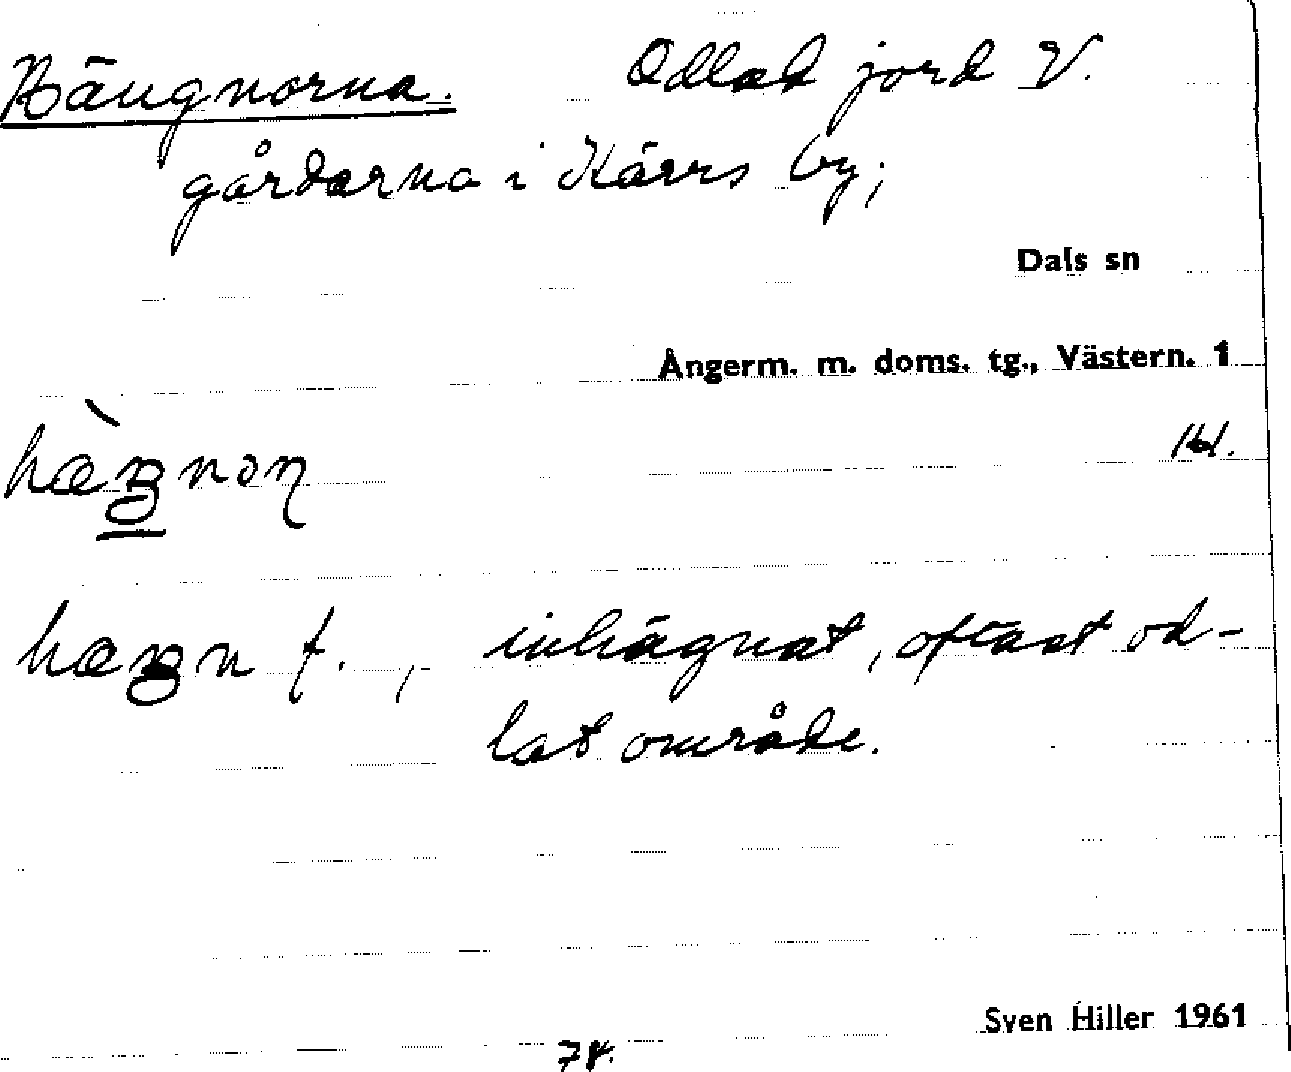 Hängnorna. Odlad jord V.
gårdarna i Kärrs by;
Dals sn
Ångerm. m. doms. tg., Västern. 1
hæŋnoɳ
hæŋn f., inhägnat, oftast od-
lat område.
Sven Hiller 1961